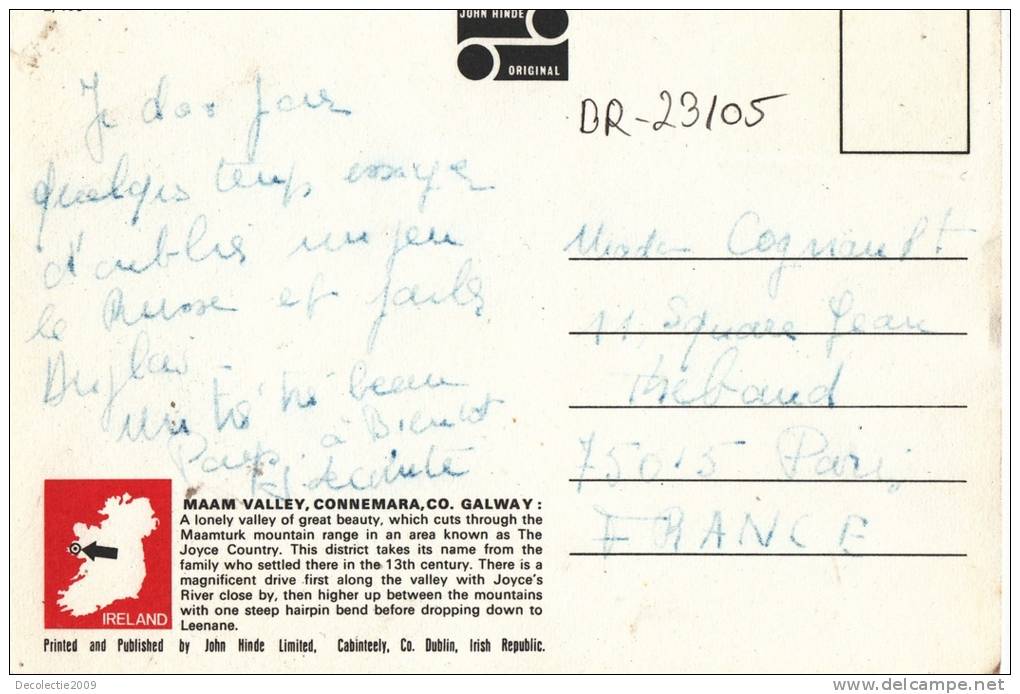 JOHN HINDE
ORIGINAL
BR-23/05
Je dois faire
quelques temps essayer
d'oublier un peu
le Russe et parler
Anglais
un très très beau
Pays à Bientôt
Madam Cognault
11 Square Jean
Thebaud
75015 Paris
FRANCE
IRELAND
MAAM VALLEY, CONNEMARA, CO. GALWAY:
A lonely valley of great beauty, which cuts through the
Maamturk mountain range in an area known as The
Joyce Country. This district takes its name from the
family who settled there in the 13th century. There is a
magnificent drive first along the valley with Joyce's
River close by, then higher up between the mountains
with one steep hairpin bend before dropping down to
Leenane.
Printed and Published by John Hinde Limited, Cabinteely, Co. Dublin, Irish Republic.
Decolectie2009
delcampe.net